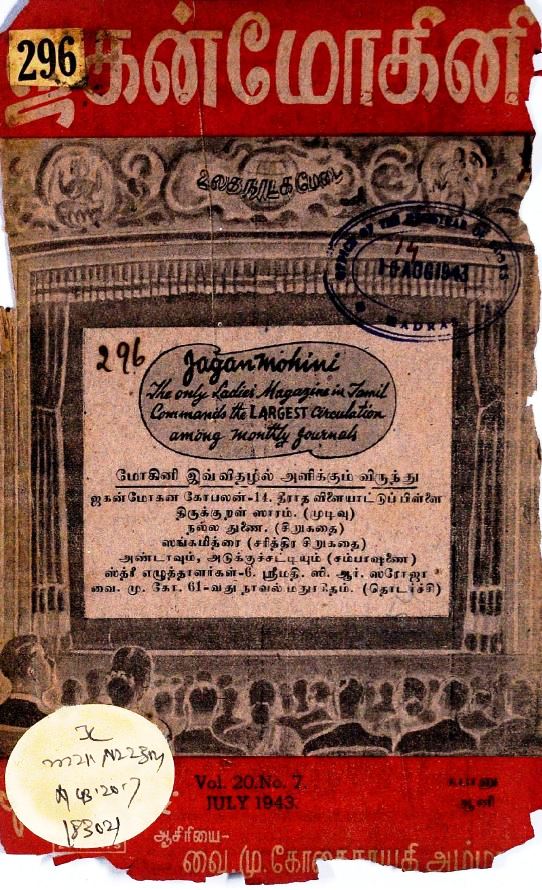 296
ஜகன்மோகினி
உலகநாடகமேடை
14
16 AUG 1943
MADRAS
296
Jagan mohini
The only Ladies' Magazine in Tamil
Commands the LARGEST Circulation
among monthly Journals
மோகினி இவ்விதழில் அளிக்கும் விருந்து
ஜகன்மோகன கோபாலன்-14. தீராத விளையாட்டுப்பிள்ளை
திருக்குறள் ஸாரம். (முடிவு)
நல்ல துணை. (சிறுகதை)
ஸங்கமித்ரை (சரித்திர சிறுகதை)
அண்டாவும், அடுக்குச்சட்டியும் (சம்பாஷணை)
ஸ்த்ரீ எழுத்தாளர்கள்-6. ஸ்ரீமதி. ஸி. ஆர். ஸரோஜா
வை. மு. கோ. 61-வது நாவல் (தொடர்ச்சி)
Vol. 20. No. 7.
JULY 1943.
ஆனி
18302
ஆசிரியை-
வை.மு.கோதைநாயகி அம்மா